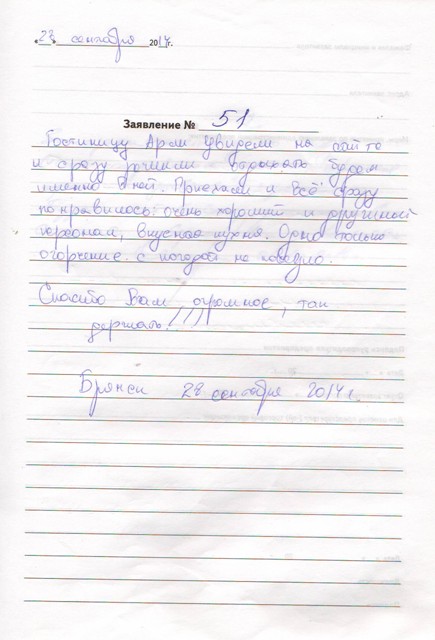 «28» сентября 2014г.
Заявление № 51
Гостиницу Арли увидели на сайте
и сразу решили отдыхать будем
именно в ней. Приехали и всё сразу
понравилось: очень хороший и дружный
персонал, вкусная кухня. Одно только
огорчение: с погодой не повезло.
Спасибо Вам огромное, так
держать!!!!
Брянск 28 сентября 2014г.